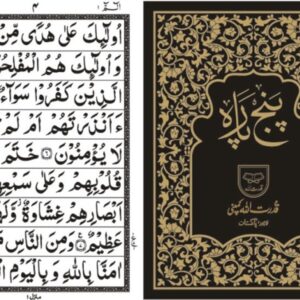 ۴
الٓمّٓ
اُولٰٓئِكَ عَلٰى هُدًى مِّنْ
وَاُولٰٓئِكَ هُمُ الْمُفْلِحُ
الَّذِيْنَ كَفَرُوْا سَوَآءٌ
ءَاَنْذَرْتَهُمْ اَمْ لَمْ
لَا يُؤْمِنُوْنَ ۝٦ خَتَمَ
قُلُوْبِهِمْ وَعَلٰى سَمْعِهِ
اَبْصَارِهِمْ غِشَاوَةٌ وَّلَهُ
عَظِيْمٌ ۝٧ وَمِنَ النَّاسِ
اٰمَنَّا بِاللّٰهِ وَبِالْيَوْمِ ال
منزل١
پنج پارہ
قدرت اللہ کمپنی
لاہور پاکستان